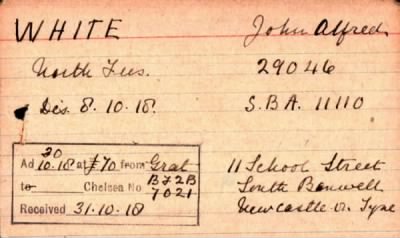 WHITE John Alfred
North Fus. 29046
Dis. 8.10.18. S.B.A. 11110
30
Ad 10.18 at £70 from Grat
B72B
to Chelsea No 7021
Received 31.10.18
11 School Street
South Benwell
Newcastle on Tyne